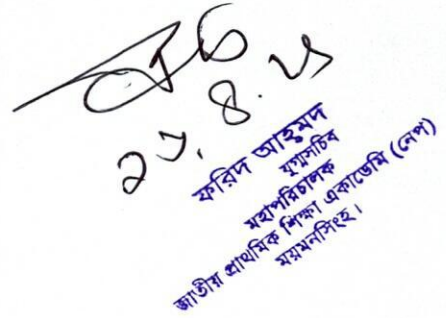 ২৭.৪.২৫
ফরিদ আহমদ
যুগ্মসচিব
মহাপরিচালক
জাতীয় প্রাথমিক শিক্ষা একাডেমি (নেপ)
ময়মনসিংহ।